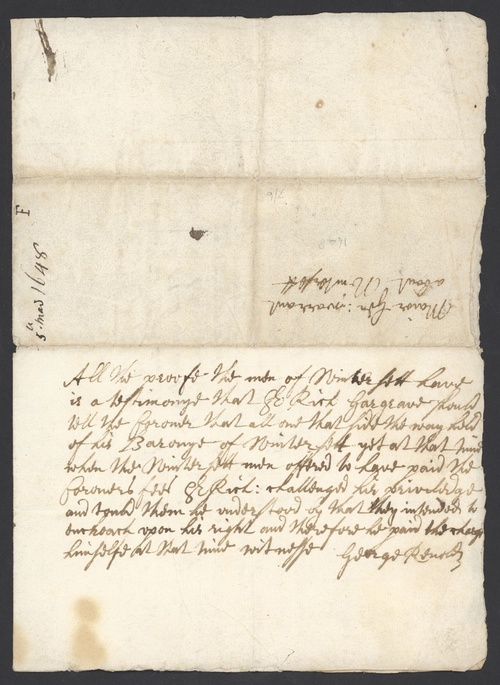 F
5ta mad 1648
Maior Gen: warrant
about Wintersett
All the proofe the men of Wintersett have
is a testimonye that Sr Rich Gargrave should
tell the Coroner that all one that side the way held
of his Baronye of Wintersett yet at that time
when the Wintersett men offered to have paid the
Coroners fees Sr Rich: challenged his priviledge
and tould them he understood by that they intended to
encroach upon his right and therefore he paid the charge
himselfe at that time witnesse George Renold